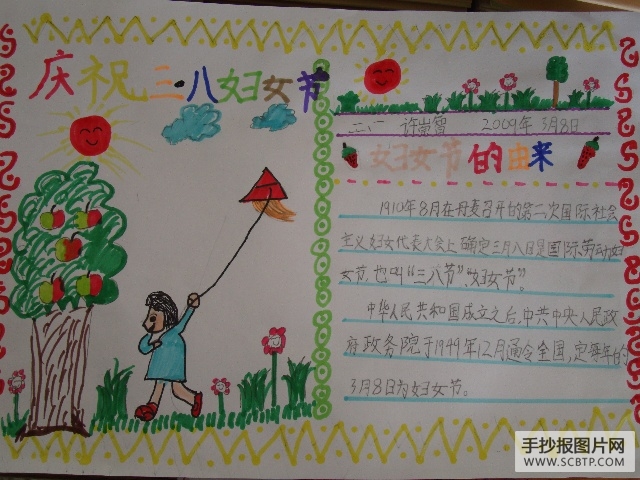 庆祝三·八妇女节
二、二 许崇智 2009年3月8日
妇女节的由来
1910年8月在丹麦召开的第二次国际社会
主义妇女代表大会上确定三月八日是国际劳动妇
女节,也叫“三八节”“妇女节”。
中华人民共和国成立之后,中共中央人民政
府政务院于1949年12月通令全国,定每年的
3月8日为妇女节。
手抄报图片网
WWW.SCBTP.COM